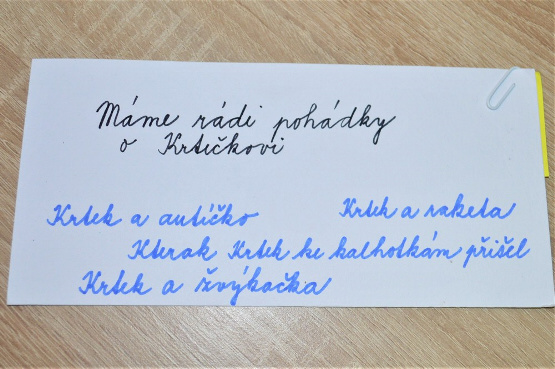 Máme rádi pohádky
o Krtečkovi
Krtek a autíčko
Krtek a raketa
Kterak Krtek ke kalhotkám přišel
Krtek a žvýkačka